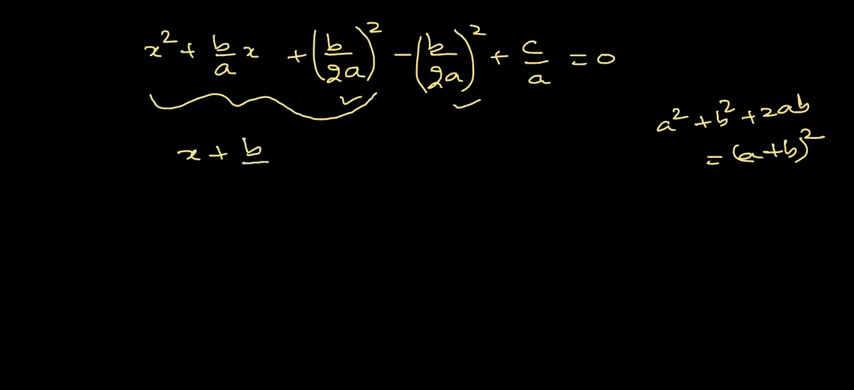 x² + b/a x + (b/2a)² - (b/2a)² + c/a = 0
a² + b² + 2ab
x + b
= (a+b)²